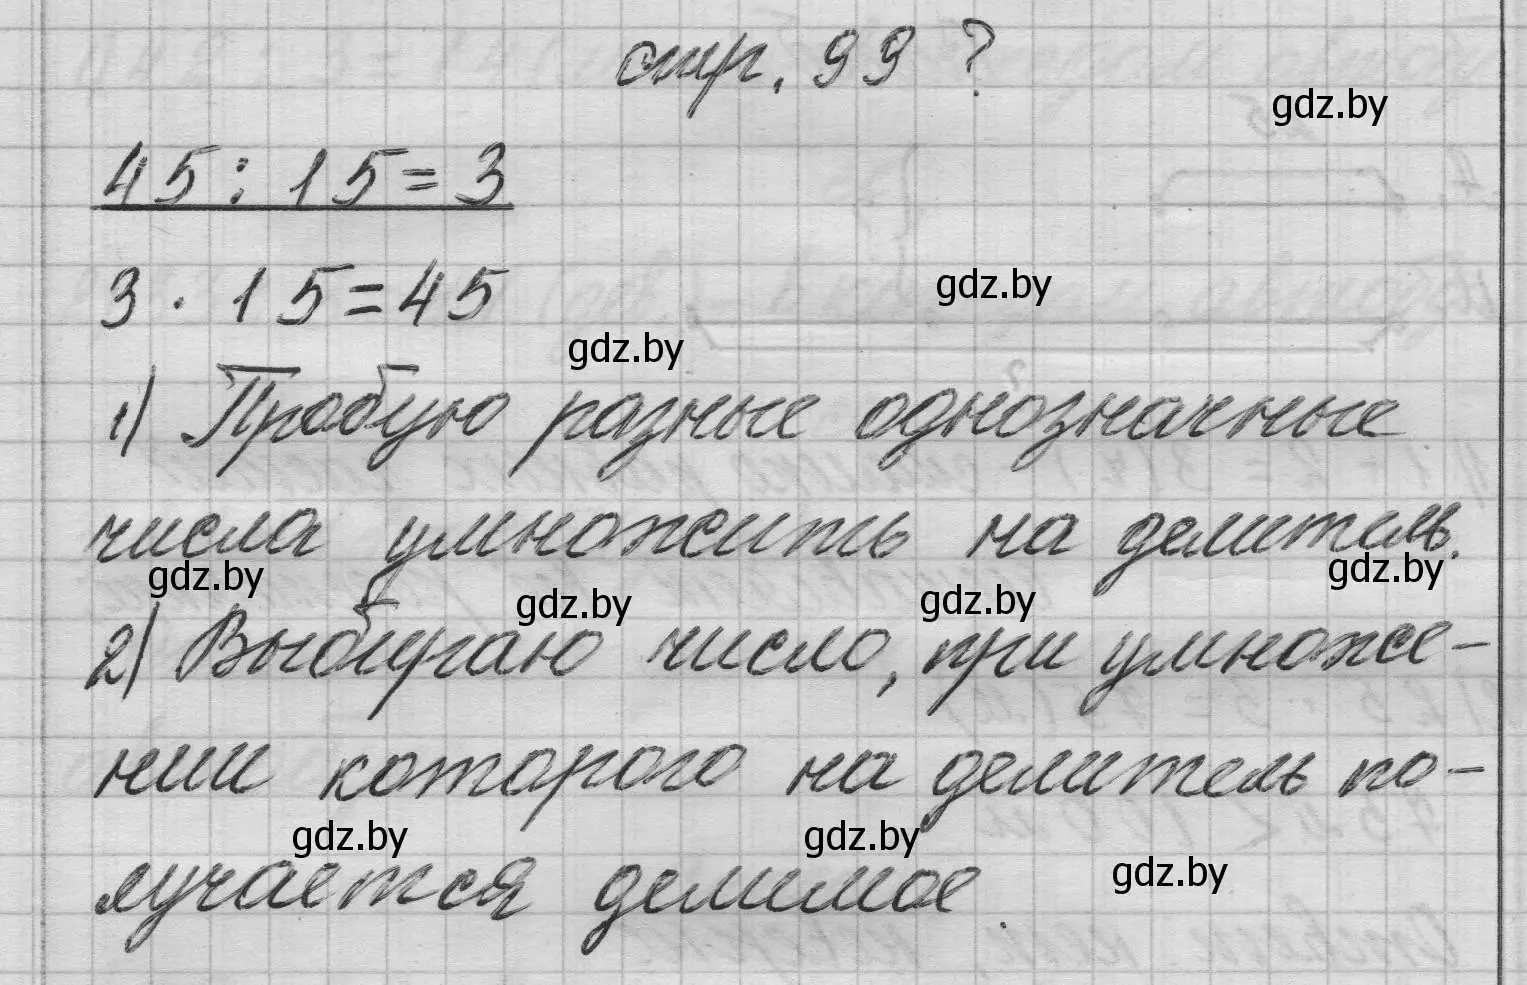 стр. 99 ?
gdz.by
45 : 15 = 3
3 · 15 = 45
gdz.by
gdz.by
1) Пробую разные однозначные
числа умножить на делитель.
gdz.by
gdz.by
gdz.by
gdz.by
2) Выбираю число, при умноже-
нии которого на делитель по-
gdz.by
gdz.by
лучается делимое.
gdz.by